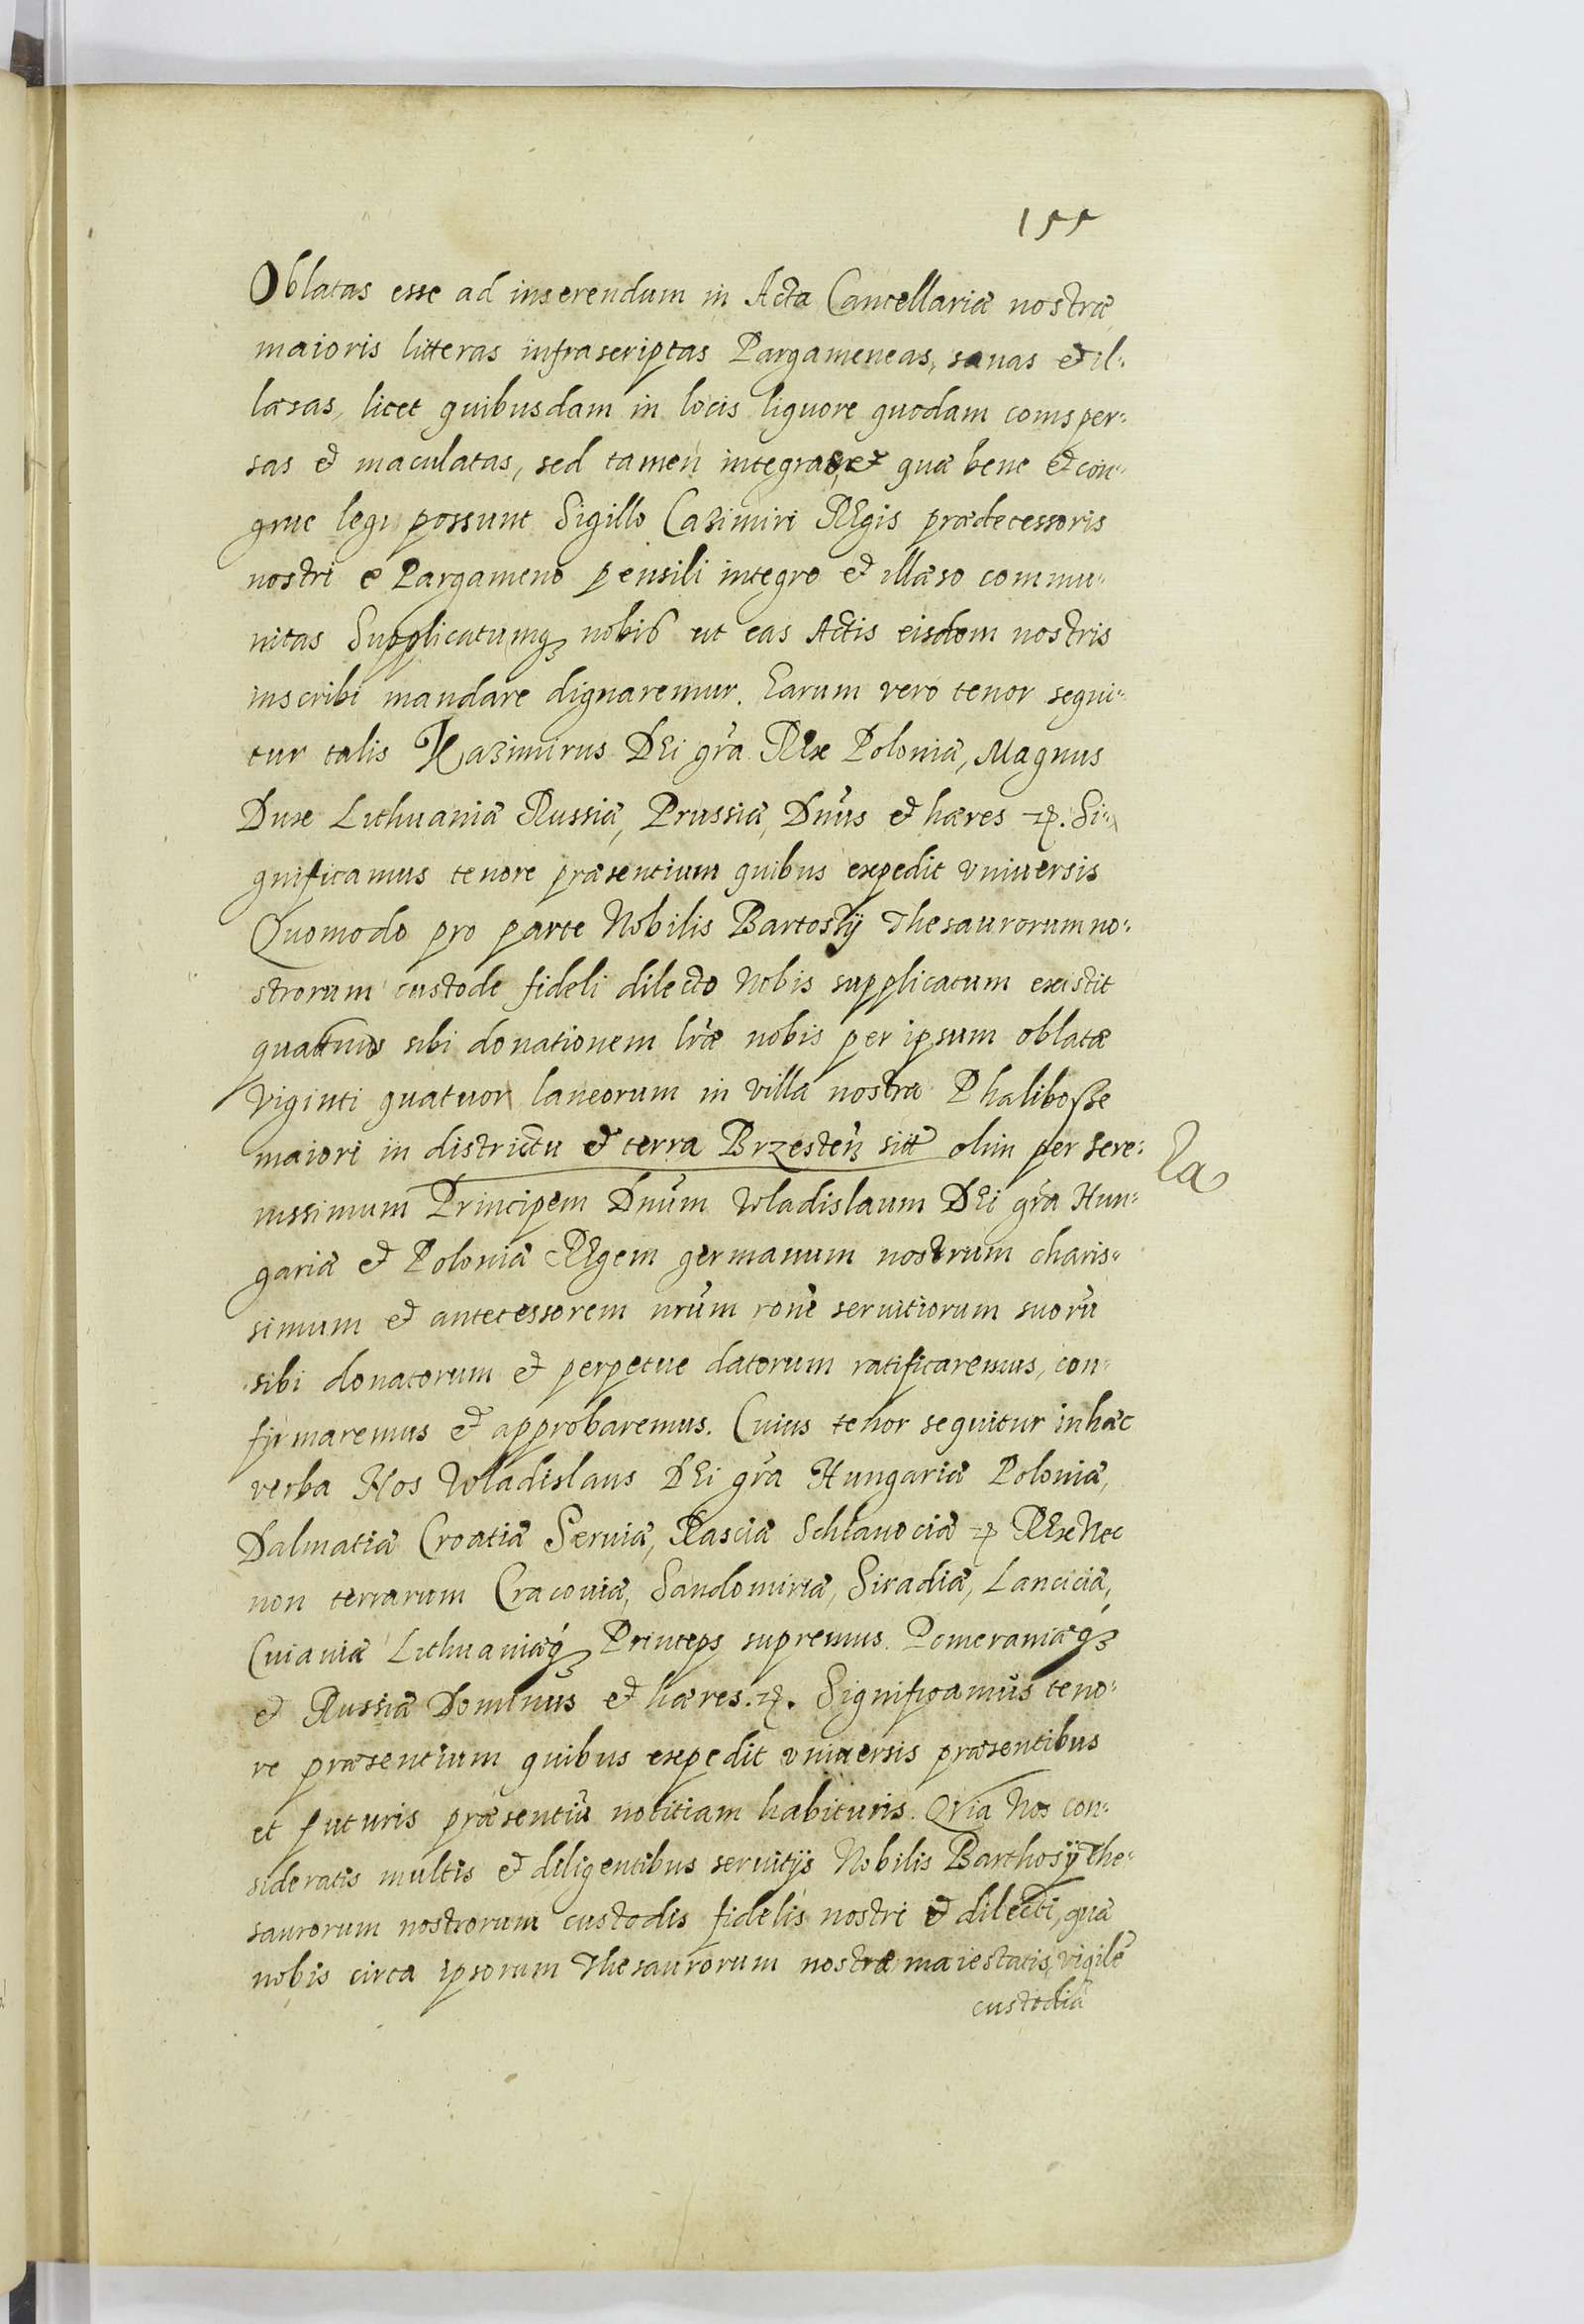 155
Oblatas esse ad inserendum in Acta Cancellariæ nostræ
maioris litteras infrascriptas Pargameneas, sanas et il-
læsas, licet quibusdam in locis liquore quodam consper-
sas et maculatas, sed tamen integras, et quæ bene et con-
grue legi possunt Sigillo Cazimiri REgis prædecessoris
nostri e Pargameno pensili integro et illæso commu-
nitas Supplicatumq3 nobis ut eas Actis eisdem nostris
inscribi mandare dignaremur. Earum vero tenor sequi-
tur talis Kazimirus DEi gra REx Poloniæ, Magnus
Dux Lithuaniæ Russiæ, Prussiæ, Dnus et hæres etc. Si-
gnificamus tenore præsentium quibus expedit vniuersis
Quomodo pro parte Nobilis Bartosÿ Thesaurorum no-
strorum custode fideli dilecto Nobis supplicatum existit
quatenus sibi donationem lræ nobis per ipsum oblatæ
viginti quatuor laneorum in villa nostra Phalibosße
maiori in districtu et terra Brzesten sitæ olim per Sere-
nissimum Principem Dnum Wladislaum DEi gra Hun-
gariæ et Poloniæ REgem germanum nostrum charis-
simum et antecessorem nrum rone seruitiorum suorū
sibi donatorum et perpetue datorum ratificaremus, con-
firmaremus et approbaremus. Cuius tenor sequitur in hæc
verba Nos Wladislaus DEi gra Hungariæ Poloniæ,
Dalmatiæ Croatiæ Seruiæ, Rasciæ Schlauociæ etc REx Nec
non terrarum Cracouiæ, Sandomiriæ, Siradiæ, Lanciciæ,
Cuiauiæ Lithuaniæq3 Princeps supremus. Pomeraniæq3
et Russiæ Dominus et hæres etc. Significamus teno-
re præsentium quibus expedit vniuersis præsentibus
et futuris præsentiū notitiam habituris. Qvia Nos con-
sideratis multis et diligentibus seruitijs Nobilis Barthosÿ The-
saurorum nostrorum custodis fidelis nostri et dilecti, quæ
nobis circa ipsorum Thesaurorum nostræ maiestatis, vigilē
custodiā